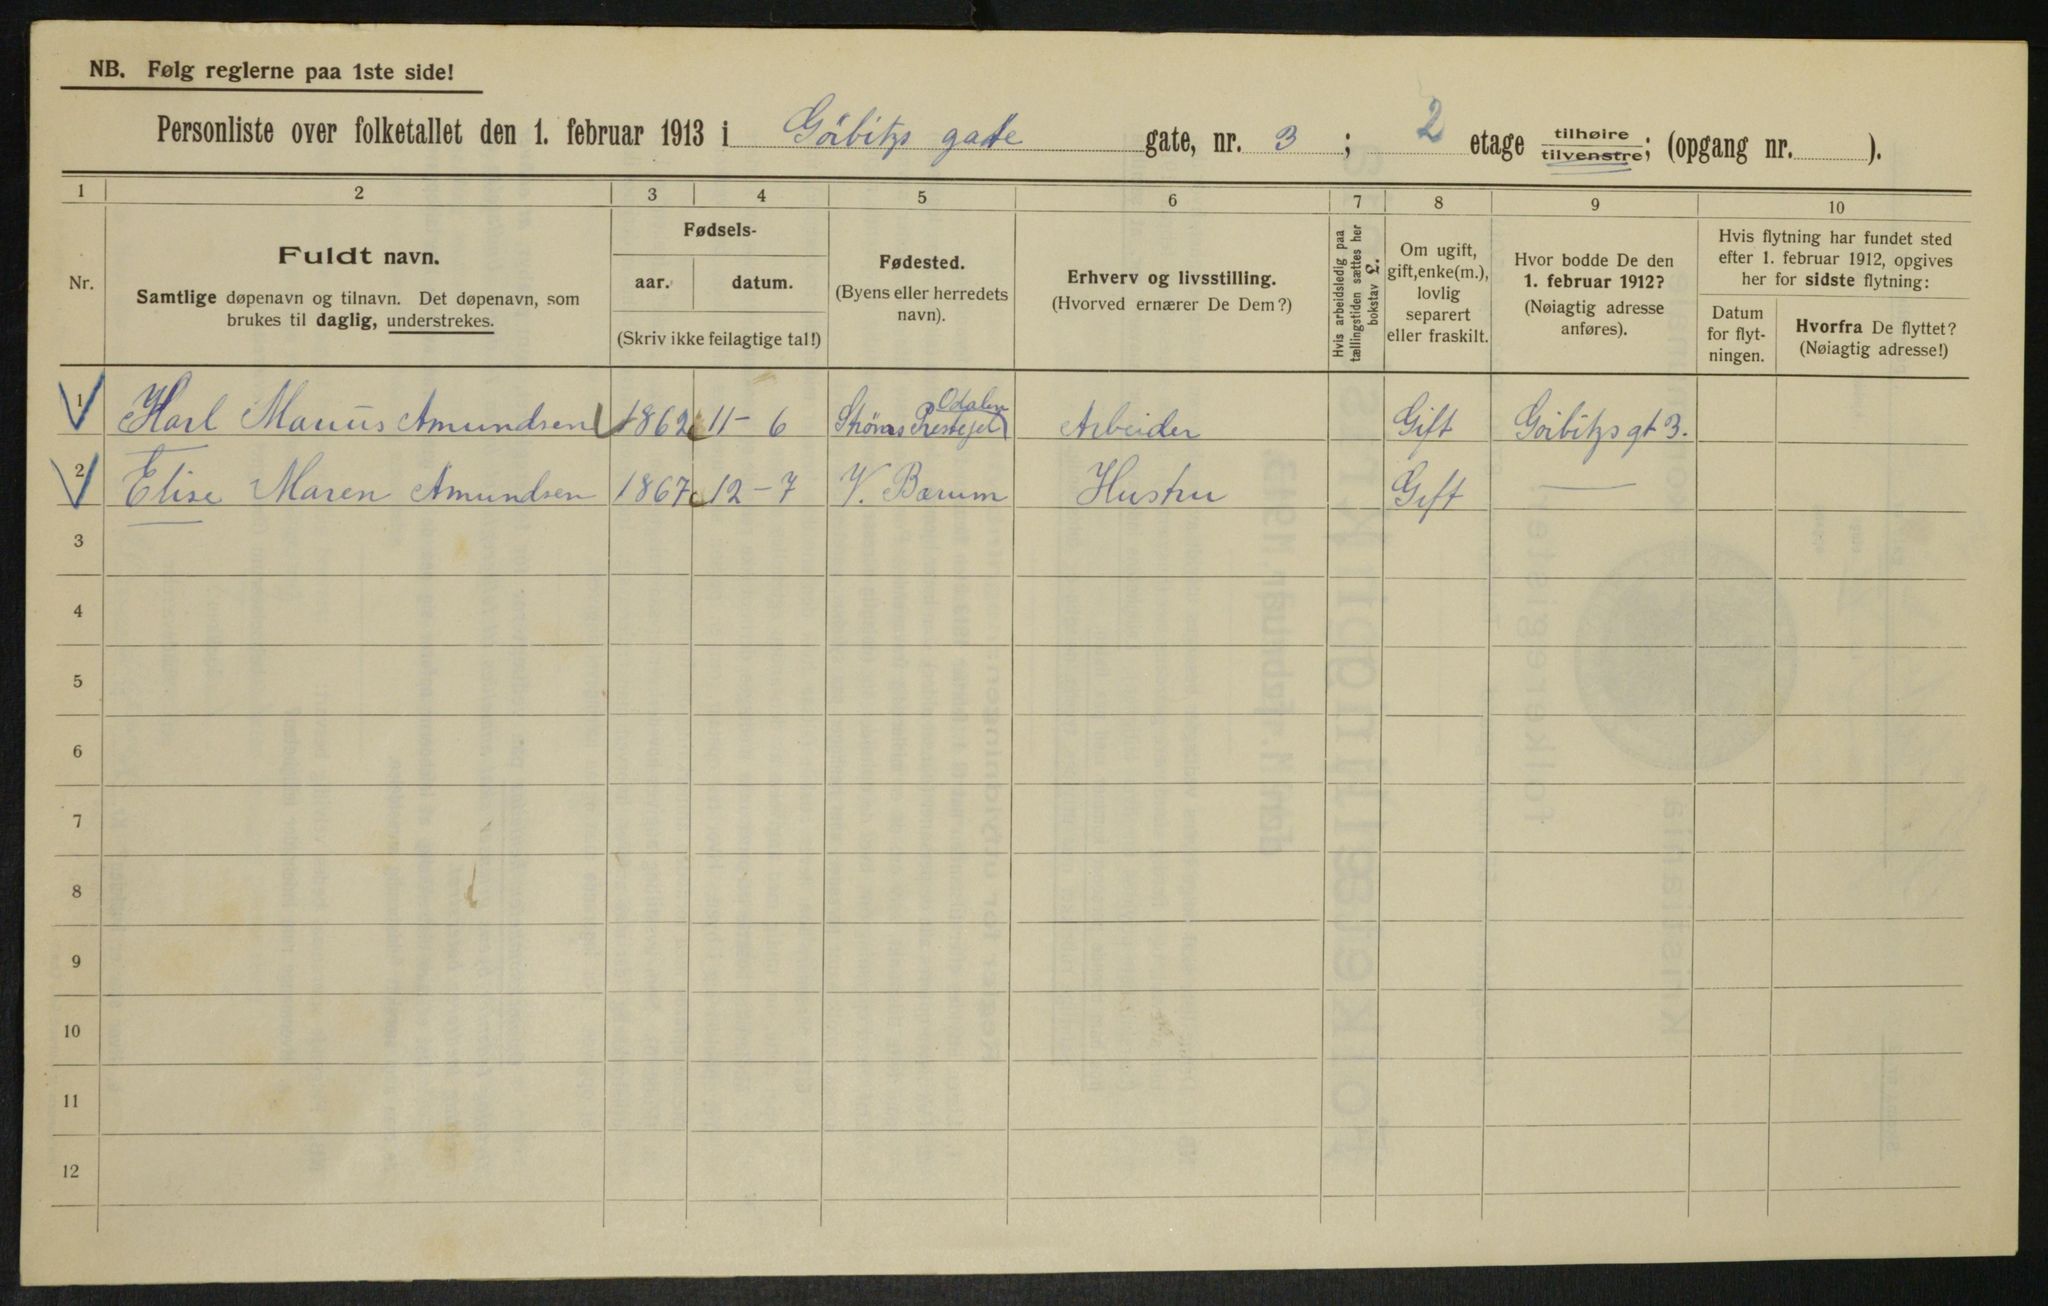 NB. Følg reglerne paa 1ste side!
Personliste over folketallet den 1. februar 1913 i Görbitzs gade gate, nr. 3 ; 2 etage tilhøire / tilvenstre; (opgang nr. ).
1 2 3 4 5 6 7 8 9 10
Nr.
Fuldt navn.
Samtlige døpenavn og tilnavn. Det døpenavn, som
brukes til daglig, understrekes.
Fødsels-
aar. datum.
(Skriv ikke feilagtige tal!)
Fødested.
(Byens eller herredets
navn).
Erhverv og livsstilling.
(Hvorved ernærer De Dem?)
Hvis arbeidsledig paa
tællingstiden sættes her
bokstav L.
Om ugift,
gift, enke(m.),
lovlig
separert
eller fraskilt.
Hvor bodde De den
1. februar 1912?
(Nøiagtig adresse
anføres).
Hvis flytning har fundet sted
efter 1. februar 1912, opgives
her for sidste flytning:
Datum
for flyt-
ningen.
Hvorfra De flyttet?
(Nøiagtig adresse!)
1 Karl Marius Amundsen 1862 11-6 Odalen Prestejel Arbeider Gift Görbitzs gt 3.
2 Elise Maren Amundsen 1867 12-7 V. Bærum Hustru Gift —
3
4
5
6
7
8
9
10
11
12